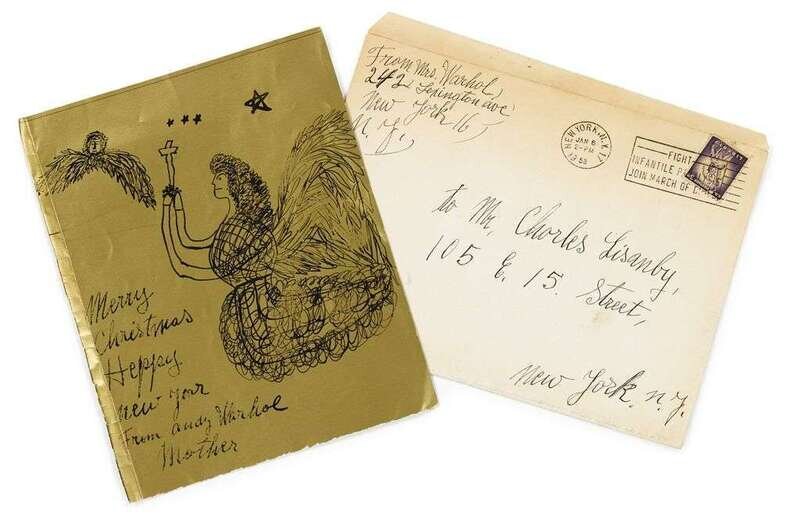 Merry
Christmas
Heppy
new year
From andy Warhol
Mother
From Mrs. Warhol,
242 Lexington ave
New York 16,
N.Y.
NEW YORK, N.Y.
JAN 6
2-PM
1958
FIGHT
INFANTILE
JOIN MARCH OF
to Mr. Charles Lisanby,
105 E. 15. Street,
New York. n.y.